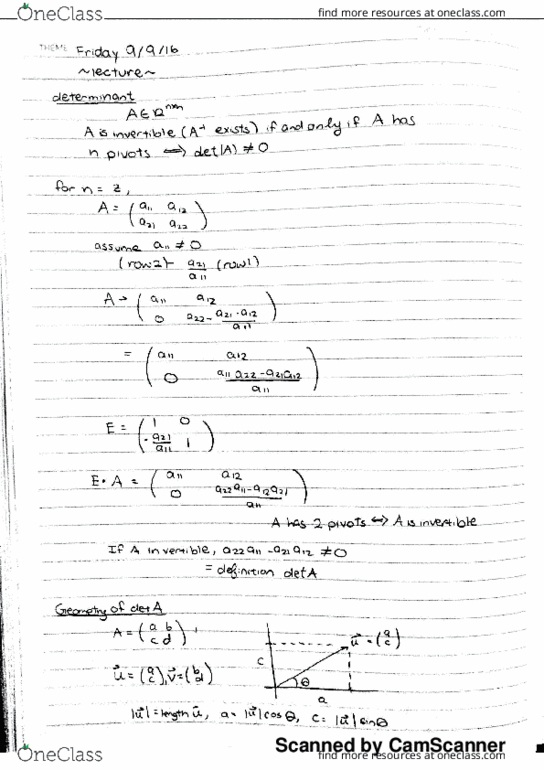 OneClass
find more resources at oneclass.com
THEME Friday 9/9/16
~lecture~
determinant
A ∈ ℝⁿˣⁿ
A is invertible (A⁻¹ exists) if and only if A has
n pivots ⟺ det(A) ≠ 0
for n = 2,
A = (a₁₁ a₁₂
a₂₁ a₂₂)
assume a₁₁ ≠ 0
(row2) - a₂₁/a₁₁ (row1)
A → (a₁₁ a₁₂
0 a₂₂ - a₂₁·a₁₂/a₁₁)
= (a₁₁ a₁₂
0 a₁₁a₂₂ - a₂₁a₁₂/a₁₁)
E = (1 0
-a₂₁/a₁₁ 1)
E·A = (a₁₁ a₁₂
0 a₂₂a₁₁ - a₁₂a₂₁/a₁₁)
A has 2 pivots ⟺ A is invertible
If A invertible, a₂₂a₁₁ - a₂₁a₁₂ ≠ 0
= definition det A
Geometry of det A
A = (a b
c d)
u⃗ = (a
c), v⃗ = (b
d)
c
θ
a
u⃗ = (a
c)
|u⃗| = length u⃗, a = |u⃗| cos θ, c = |u⃗| sin θ
Scanned by CamScanner
OneClass
find more resources at oneclass.com